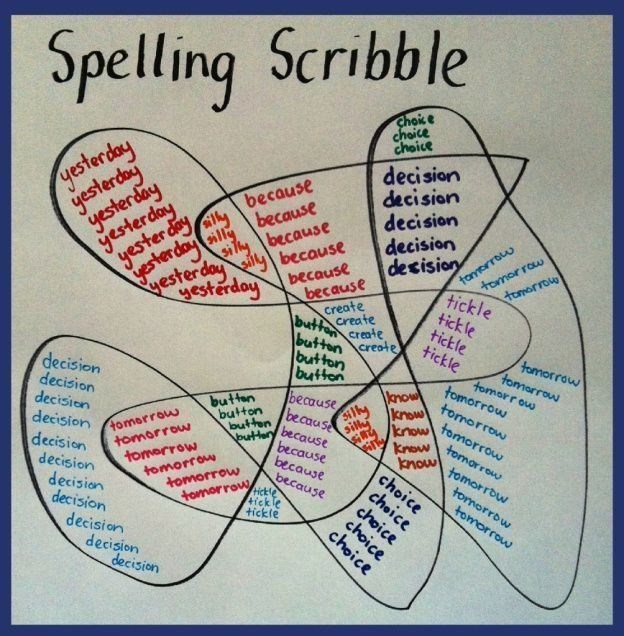 Spelling Scribble
yesterday
yesterday
yesterday
yesterday
yesterday
yesterday
yesterday
yesterday
silly
silly
silly
silly
because
because
because
because
because
because
choice
choice
choice
decision
decision
decision
decision
decision
tomorrow
tomorrow
tomorrow
create
create
create
create
tickle
tickle
tickle
tickle
button
button
button
button
decision
decision
decision
decision
decision
decision
decision
decision
decision
decision
decision
tomorrow
tomorrow
tomorrow
tomorrow
tomorrow
button
button
button
button
because
because
because
because
because
because
silly
silly
silly
silly
know
know
know
know
know
tomorrow
tomorrow
tomorrow
tomorrow
tomorrow
tomorrow
tomorrow
tomorrow
tomorrow
tomorrow
tomorrow
tickle
tickle
tickle
choice
choice
choice
choice
choice